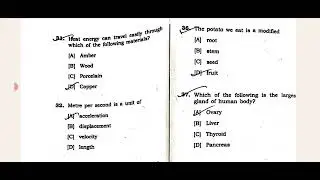 31. Heat energy can travel easily through
which of the following materials?
[A] Amber
[B] Wood
[C] Porcelain
[D] Copper
32. Metre per second is a unit of
[A] acceleration
[B] displacement
[C] velocity
[D] length
36. The potato we eat is a modified
[A] root
[B] stem
[C] seed
[D] fruit
37. Which of the following is the larges
gland of human body?
[A] Ovary
[B] Liver
[C] Thyroid
[D] Pancreas